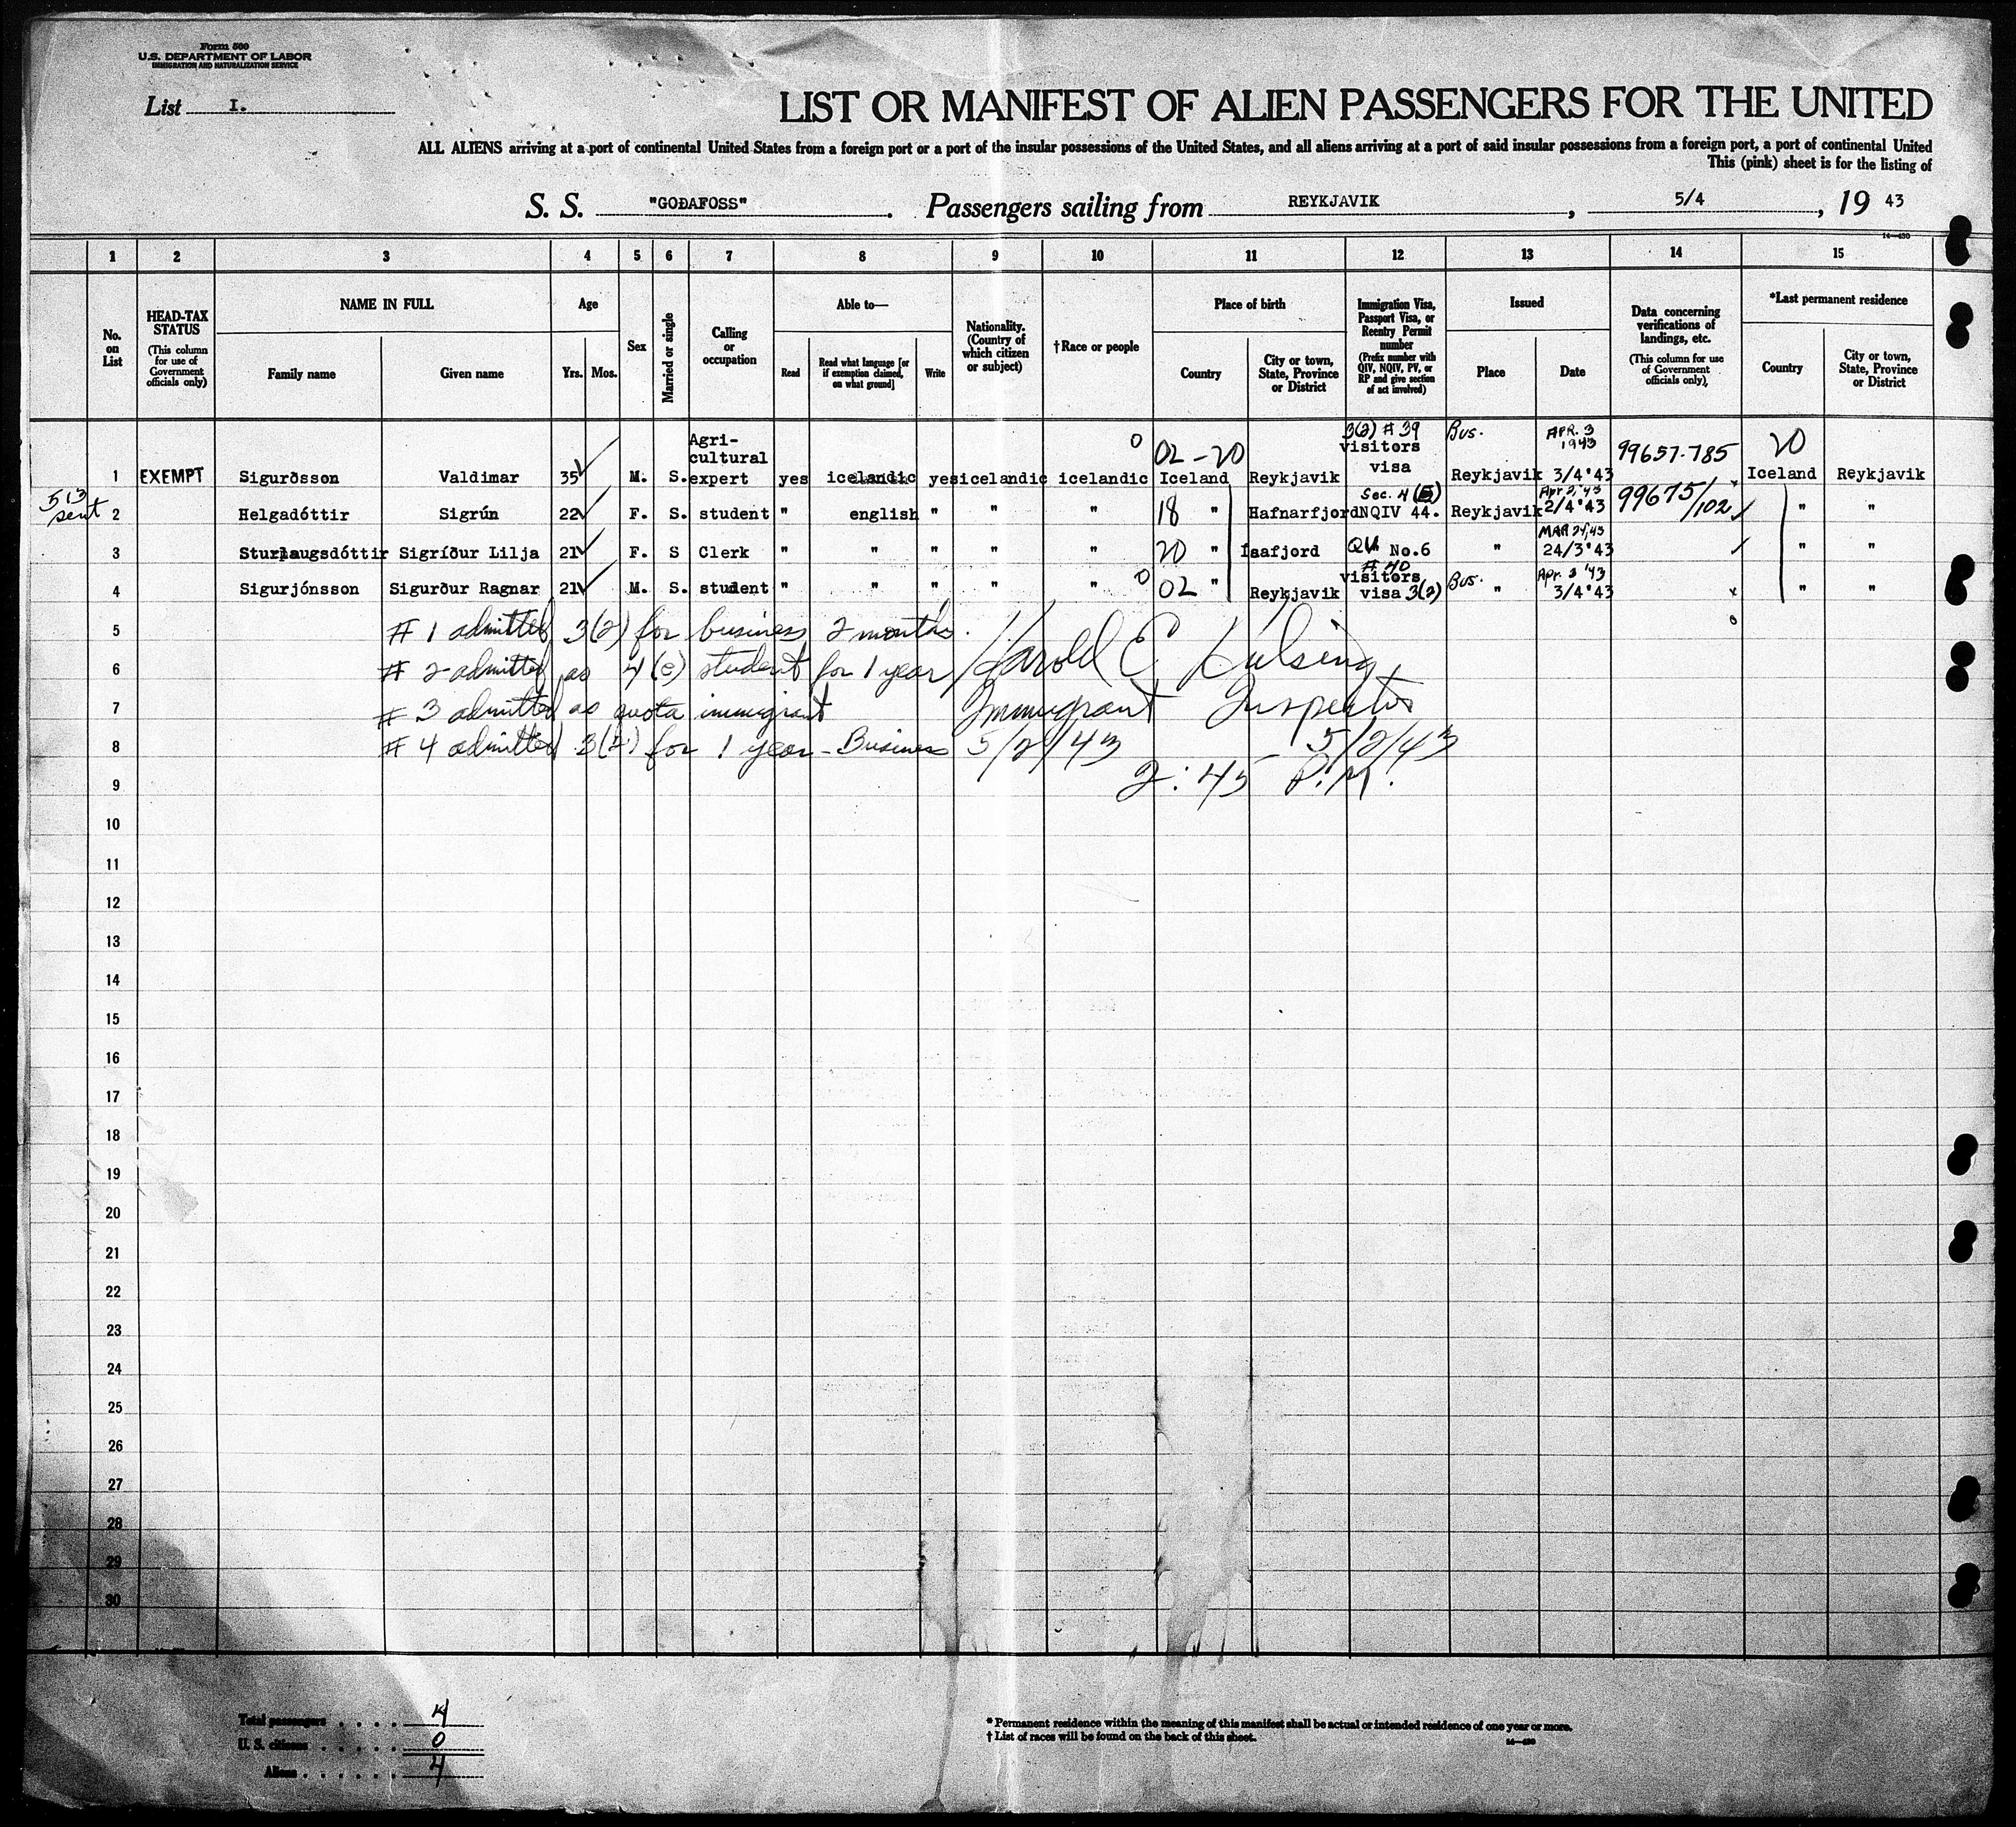 Form 500
U.S. DEPARTMENT OF LABOR
IMMIGRATION AND NATURALIZATION SERVICE
List I.
LIST OR MANIFEST OF ALIEN PASSENGERS FOR THE UNITED
ALL ALIENS arriving at a port of continental United States from a foreign port or a port of the insular possessions of the United States, and all aliens arriving at a port of said insular possessions from a foreign port, a port of continental United
This (pink) sheet is for the listing of
S. S. "GOÐAFOSS". Passengers sailing from REYKJAVIK, 5/4, 19 43
1 2 3 4 5 6 7 8 9 10 11 12 13 14 15
No. on List
HEAD-TAX STATUS (This column for use of Government officials only)
NAME IN FULL
Family name
Given name
Age
Yrs. Mos.
Sex
Married or single
Calling or occupation
Able to—
Read
Read what language [or if exemption claimed, on what ground]
Write
Nationality. (Country of which citizen or subject)
†Race or people
Place of birth
Country
City or town, State, Province or District
Immigration Visa, Passport Visa, or Reentry Permit number (Prefix number with QIV, NQIV, PV, or RP and give section of act involved)
Issued
Place
Date
Data concerning verifications of landings, etc. (This column for use of Government officials only)
*Last permanent residence
Country
City or town, State, Province or District
Agri- 3(2) # 39 Bus. APR. 3
cultural 0 02-20 visitors 1943 99657-785 20
1 EXEMPT Sigurðsson Valdimar 35 M. S. expert yes icelandic yes icelandic icelandic Iceland Reykjavik visa Reykjavik 3/4'43 Iceland Reykjavik
513 sent Sec. 4 (E) Apr 2, '43 99675/102
2 Helgadóttir Sigrún 22 F. S. student " english " " " 18 " Hafnarfjord NQIV 44. Reykjavik 2/4'43 " "
MAR 24, 43
3 Sturlaugsdóttir Sigríður Lilja 21 F. S Clerk " " " " " 20 " Isafjord QV. No.6 " 24/3'43 " "
# 40 visitors Bus. Apr. 3 '43
4 Sigurjónsson Sigurður Ragnar 21 M. S. student " " " " " 0 02 " Reykjavik visa 3(2) " 3/4'43 " "
5 # 1 admitted 3(2) for business 2 months. Harold E Hulsing
6 # 2 admitted as 4(e) student for 1 year
7 # 3 admitted as quota immigrant Immigrant Inspector
8 # 4 admitted 3(2) for 1 year - Business 5/2/43 5/2/43
9 2:45 P.M.
10
11
12
13
14
15
16
17
18
19
20
21
22
23
24
25
26
27
28
29
30
Total passengers . . . . 4
U. S. citizens . . . . . 0
Aliens . . . . . . 4
* Permanent residence within the meaning of this manifest shall be actual or intended residence of one year or more.
† List of races will be found on the back of this sheet.